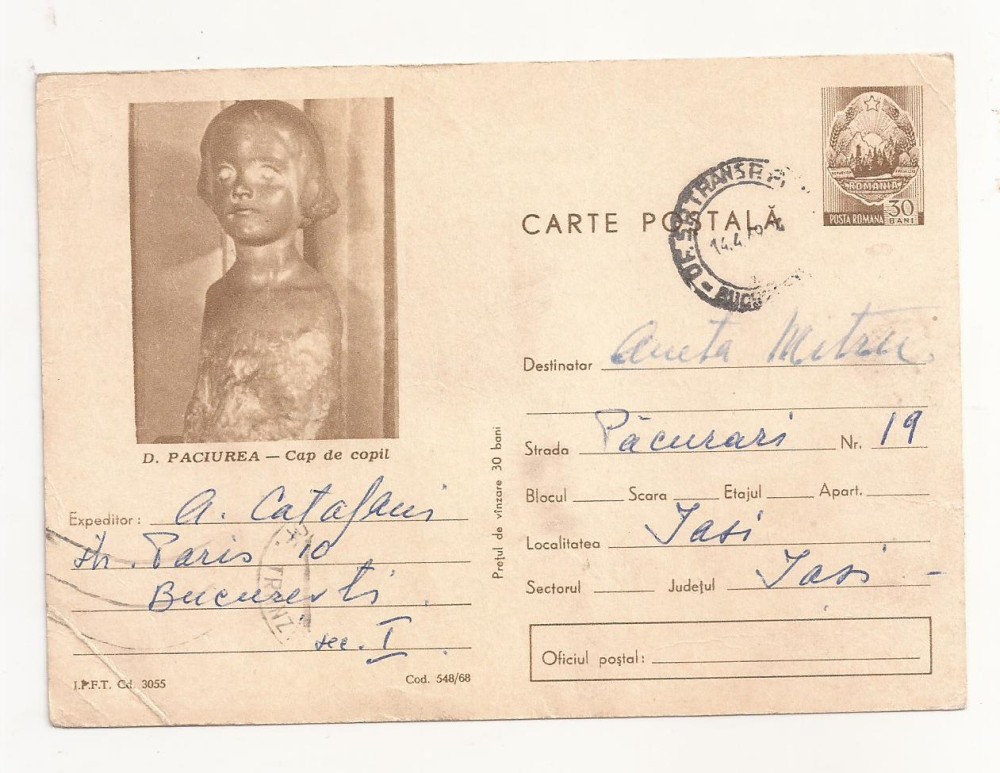 ROMANIA
POSTA ROMANA 30 BANI
CARTE POSTALĂ
OF. SP. TRANSP. P.
14.4.70
BUCU
D. PACIUREA — Cap de copil
Expeditor: A. Catafani
str. Paris 10
Bucuresti
sec. I
I.P.F.T. Cd. 3055
Cod. 548/68
TRANZ
Prețul de vînzare 30 bani
Destinatar Aneta Mitru
Strada Păcurari Nr. 19
Blocul Scara Etajul Apart.
Localitatea Iasi
Sectorul Județul Iasi -
Oficiul poștal: